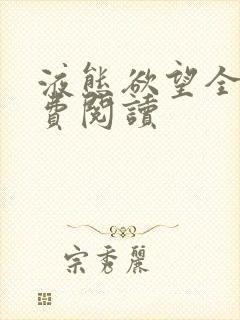 液態欲望全
費閱讀
宗秀麗